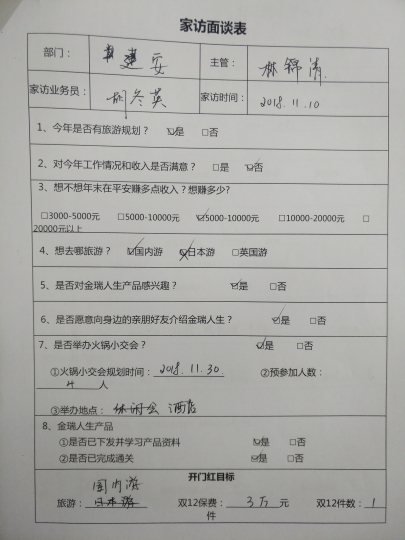 家访面谈表
部门： 建安 主管： 林锦清
家访业务员： 胡冬英 家访时间： 2018.11.10
1、今年是否有旅游规划？ ☑是 □否
2、对今年工作情况和收入是否满意？ □是 ☑否
3、想不想年末在平安赚多点收入？想赚多少?
□3000-5000元 □5000-10000元 ☑5000-10000元 □10000-20000元 □
20000元以上
4、想去哪旅游？ ☑国内游 ☑日本游 □英国游
5、是否对金瑞人生产品感兴趣？ ☑是 □否
6、是否愿意向身边的亲朋好友介绍金瑞人生？ ☑是 □否
7、是否举办火锅小交会？ ☑是 □否
①火锅小交会规划时间： 2018.11.30 ②预参加人数：
4 人
③举办地点： 休闲会 酒店
8、金瑞人生产品
①是否已下发并学习产品资料 ☑是 □否
②是否已完成通关 ☑是 □否
开门红目标
国内游
旅游： 日本游 双12保费： 3万 元 双12件数： 1
件